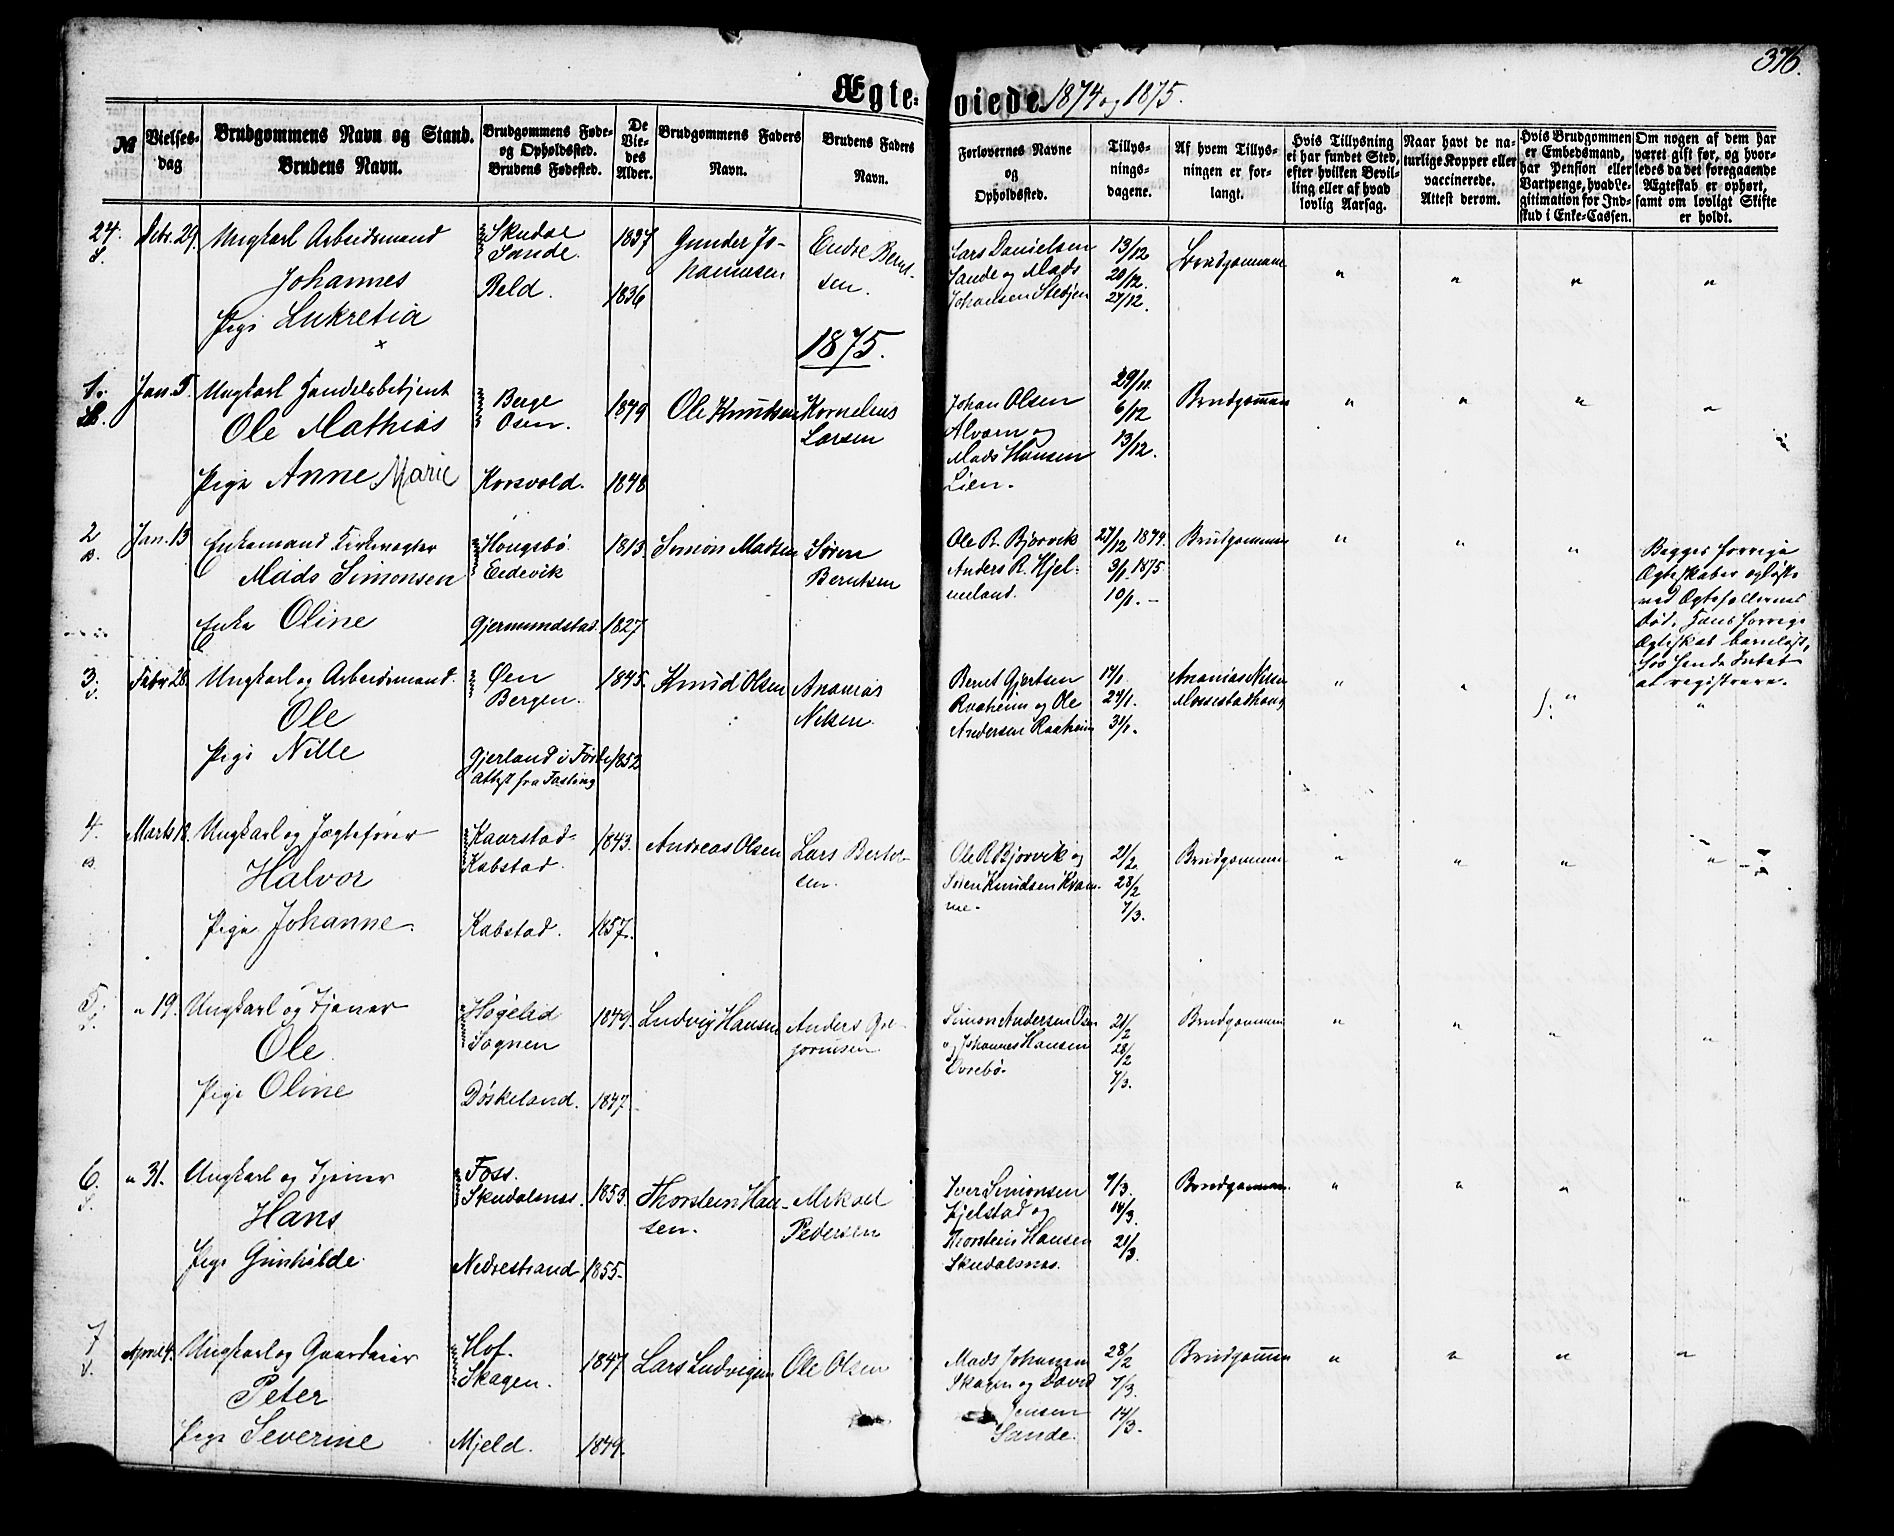 376.
Ægte-viede 1874 og 1875.
№
Vielses-
dag
Brudgommens Navn og Stand.
Brudens Navn.
Brudgommens Føde-
og Opholdssted.
Brudens Fødested.
De
Vie-
des
Alder.
Brudgommens Faders
Navn.
Brudens Faders
Navn.
Forlovernes Navne
og
Opholdssted.
Tillys-
nings-
dagene.
Af hvem Tillys-
ningen er for-
langt.
Hvis Tillysning
ei har fundet Sted,
efter hvilken Bevil-
ling eller af hvad
lovlig Aarsag.
Naar havt de na-
turlige Kopper eller
vaccinerede.
Attest derom.
Hvis Brudgommen
er Embedsmand,
har Pension eller
Vartpenge, hvad Le-
gitimation for Ind-
skud i Enke-Cassen.
Om nogen af dem har
været gift før, og hvor-
ledes da det foregaaende
Ægteskab er ophørt,
samt om lovligt Skifte
er holdt.
24.
S.
Decbr. 27.
Ungkarl Arbeidsmand
Johannes
Pige Lukretia
Skudal
Sande.
Beld.
1837
1836
Gunder Jo-
hannesen
Endre Bernt-
sen.
Lars Danielsen
Sande og Mads
Johansen Stedjen
13/12
20/12.
27/12.
Brudgommen
" " " "
1875.
1.
Jan. 5.
Ungkarl Handelsbetjent
Ole Mathias
Pige Anne Marie
Berge
Osen.
Korsvold.
1849
1848
Ole Knudsen
Kornelius
Larsen
Johan Olsen
Alværn og
Mads Hansen
Lien.
29/11.
6/12
13/12.
Brudgommen
" " " "
2
B.
Jan. 13
Enkemand Kirkevægter
Mads Simonsen
Enke Oline
Hougsbø
Eedevik
Gjermundstad.
1813.
1827
Simon Madsen
Søren
Berntsen
Ole R. Bjorvik
Anders R. Hjel-
meland.
27/12 1874.
3/1. 1875
10/1. —
Brudgommen
" " "
Begges forrige
Ægteskaber opløste
ved Ægtefællernes
Død. Hans forrige
Ægteskab barnløst,
hos hende Intet
at registrere.
3.
S.
Febr. 28.
Ungkarl og Arbeidsmand.
Ole
Pige Nille
Øen
Bergen.
Gjerland i Førde
Attest fra Fasting
1845.
1852
Knud Olsen
Ananias
Nilsen.
Bernt Gjertsen
Raaheim og Ole
Andersen Raaheim
17/1.
24/1.
31/1.
Ananias Nilsen
" " " "
4.
B
Marts 18.
Ungkarl og Jægtefører
Halvor
Pige Johanne.
Kaarstad
Kabstad.
Kabstad.
1843.
1857.
Andreas Olsen
Lars Bertel-
sen.
Ole R Bjorvik og
Søren Knudsen Kvam-
me.
21/2
28/2
7/3.
Brudgommen
" " " "
5.
S.
" 19.
Ungkarl og Tjener
Ole
Pige Oline
Høgelid
Sognen
Døskeland.
1849.
1847
Ludvig Hansen
Anders Gut-
tormsen
Simon Andersen Osen
og Johannes Hansen
Dvrebø.
21/2
28/2
7/3.
Brudgommen
" " " "
6.
S.
" 31.
Ungkarl og Tjener
Hans
Pige Gunhilde
Foss.
Skudalsnæs.
Nedrestrand
1853.
1855.
Thorstein Han-
sen.
Mikael
Pedersen
Iver Simonsen
Fjelstad og
Thorstein Hansen
Skudalsnæs.
7/3.
14/3.
21/3.
Brudgommen.
" " " "
7
S.
April 4.
Ungkarl og Gaardeier
Peter
Pige Severine
Hof.
Skagen.
Mjeld.
1847.
1849.
Lars Ludvigsen
Ole Olsen
Mads Johansen
Skagen og David
Jensen
Sande.
28/2
7/3.
14/3.
Brudgommen
" " " "